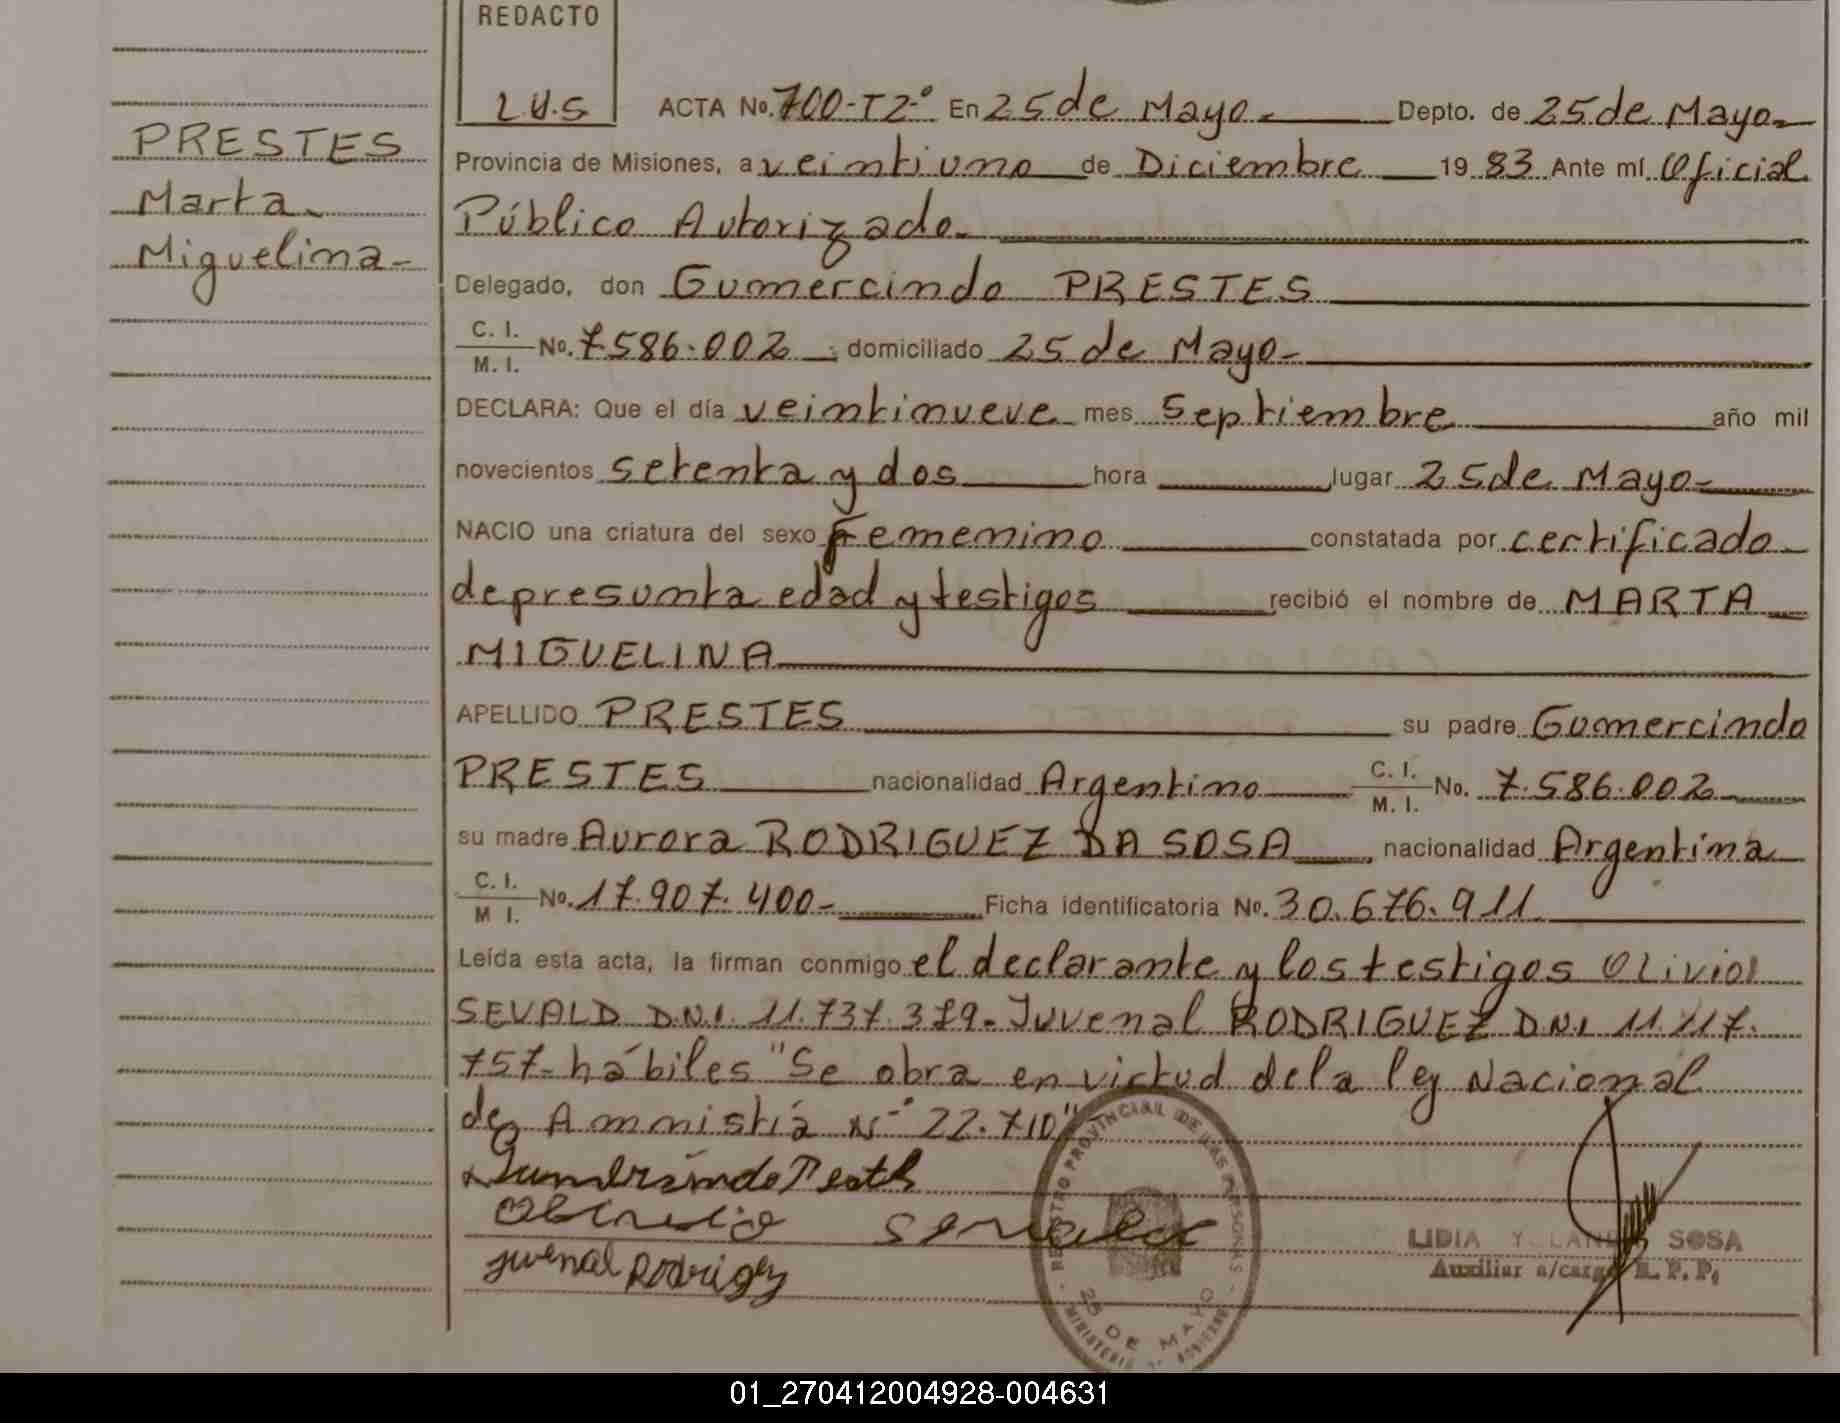 REDACTO
L.Y.S
PRESTES
Marta
Miguelina-
ACTA No. 700-T2-º En 25 de Mayo- Depto. de 25 de Mayo-
Provincia de Misiones, a veintiuno de Diciembre 19 83 Ante mí Oficial
Público Autorizado-
Delegado, don Gumercindo PRESTES
C. I. / M. I. No. 7.586.002 ; domiciliado 25 de Mayo-
DECLARA: Que el día veintinueve mes Septiembre año mil
novecientos setenta y dos hora lugar 25 de Mayo-
NACIO una criatura del sexo Femenino constatada por certificado
de presunta edad y testigos recibió el nombre de MARTA
MIGUELINA
APELLIDO PRESTES su padre Gumercindo
PRESTES nacionalidad Argentino C. I. / M. I. No. 7.586.002
su madre Aurora RODRIGUEZ DA SOSA, nacionalidad Argentina
C. I. / M I. No. 17.907.400- Ficha identificatoria No. 30.676.911
Leída esta acta, la firman conmigo el declarante y los testigos Olivio
SEVALD D.N.I. 11.737.379- Juvenal RODRIGUEZ D.N.I 11.117.
757- hábiles "Se obra en victud de la ley Nacional
de Amnistía Nº 22.710"
Juvenal Rodriguez
REGISTRO PROVINCIAL DE LAS PERSONAS
25 DE MAYO
MINISTERIO DE GOBIERNO
LIDIA YOLANDA SOSA
Auxiliar a/cargo R. P. P.
01_270412004928-004631